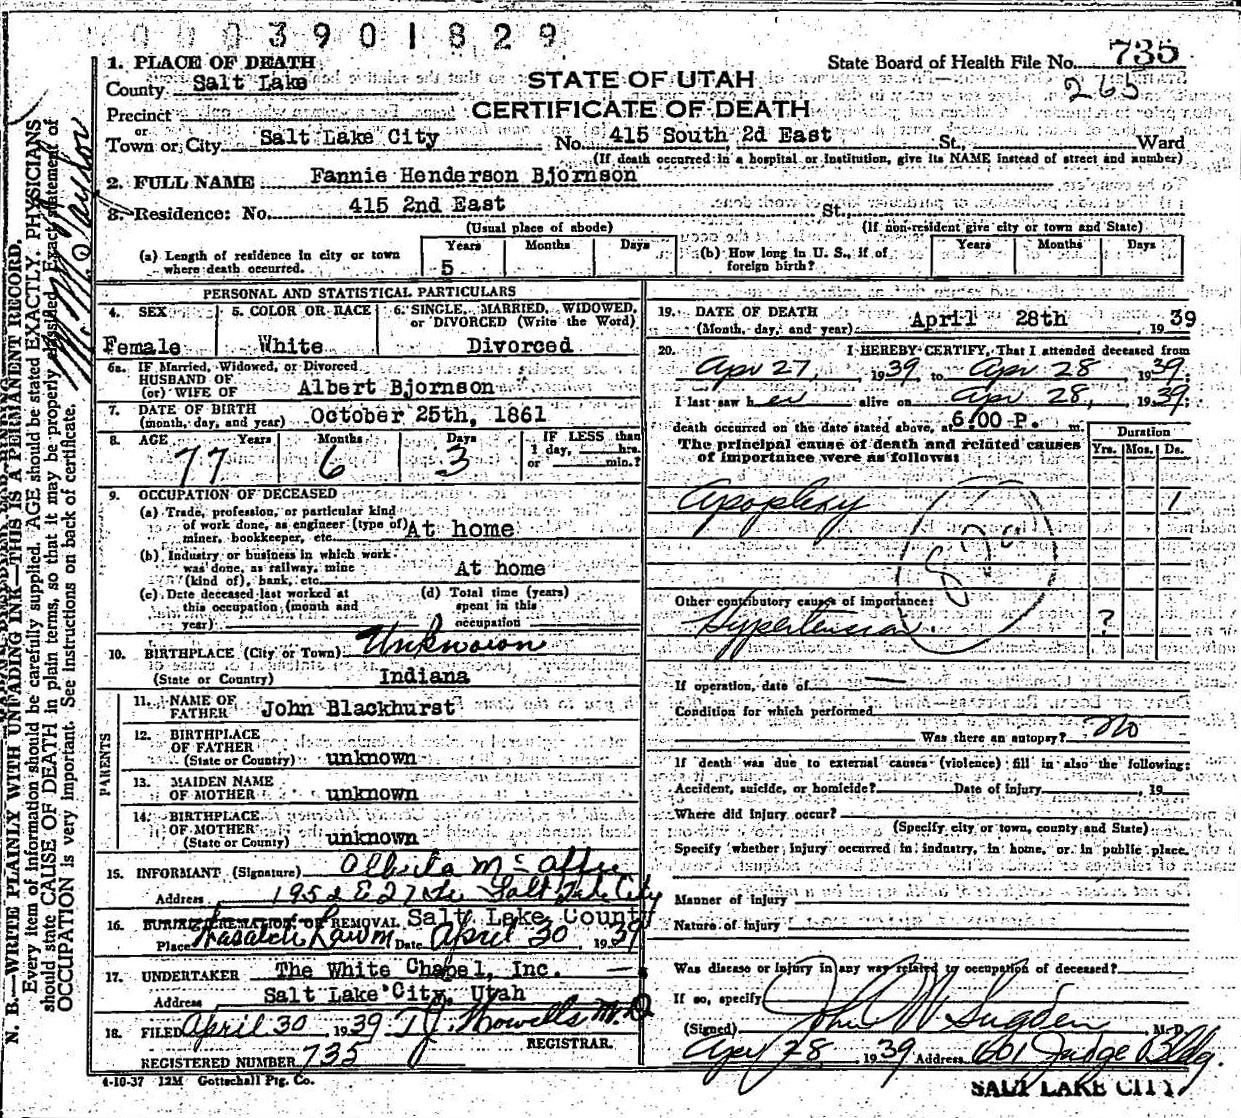 0003901829
1. PLACE OF DEATH
State Board of Health File No. 735
265
County Salt Lake
STATE OF UTAH
CERTIFICATE OF DEATH
Precinct
or
Town or City Salt Lake City No. 415 South 2d East St., Ward
(If death occurred in a hospital or institution, give its NAME instead of street and number)
2. FULL NAME Fannie Henderson Bjornson
3. Residence: No. 415 2nd East St.,
(Usual place of abode) (If non-resident give city or town and State)
(a) Length of residence in city or town where death occurred. Years 5 Months Days
(b) How long in U. S., if of foreign birth? Years Months Days
PERSONAL AND STATISTICAL PARTICULARS
4. SEX 5. COLOR OR RACE 6. SINGLE, MARRIED, WIDOWED, or DIVORCED (Write the Word)
Female White Divorced
6a. IF Married, Widowed, or Divorced
HUSBAND OF
(or) WIFE OF Albert Bjornson
7. DATE OF BIRTH
(month, day, and year) October 25th, 1861
8. AGE Years Months Days IF LESS than
1 day, hrs.
or min.?
77 6 3
9. OCCUPATION OF DECEASED
(a) Trade, profession, or particular kind
of work done, as engineer (type of)
miner, bookkeeper, etc. At home
(b) Industry or business in which work
was done, as railway, mine
(kind of), bank, etc. At home
(c) Date deceased last worked at
this occupation (month and
year)
(d) Total time (years)
spent in this
occupation
10. BIRTHPLACE (City or Town) Unknown
(State or Country) Indiana
PARENTS
11. NAME OF
FATHER John Blackhurst
12. BIRTHPLACE
OF FATHER
(State or Country) unknown
13. MAIDEN NAME
OF MOTHER unknown
14. BIRTHPLACE
OF MOTHER
(State or Country) unknown
15. INFORMANT (Signature) Alberta McAffee
Address 1952 E 27 So. Salt Lake City
16. BURIAL, CREMATION, OR REMOVAL Salt Lake County
Place Wasatch Lawn Date April 30, 1939
17. UNDERTAKER The White Chapel, Inc.
Address Salt Lake City, Utah
18. FILED April 30, 1939 T.J. Howells M.D.
REGISTRAR.
REGISTERED NUMBER 735
4-10-37 12M Gottschall Ptg. Co.
19. DATE OF DEATH
(Month, day, and year) April 28th, 1939
20. I HEREBY CERTIFY, That I attended deceased from
Apr 27, 1939 to Apr 28 1939
I last saw her alive on Apr 28, 1939
death occurred on the date stated above, at 6:00 P. m.
The principal cause of death and related causes
of importance were as follows:
Duration
Yrs. Mos. Ds.
Apoplexy 1
Other contributory causes of importance:
Hypertension. ?
If operation, date of —
Condition for which performed
Was there an autopsy? No
If death was due to external causes (violence) fill in also the following:
Accident, suicide, or homicide? Date of injury , 19
Where did injury occur?
(Specify city or town, county and State)
Specify whether injury occurred in industry, in home, or in public place.
Manner of injury
Nature of injury
Was disease or injury in any way related to occupation of deceased?
If so, specify
(Signed) John W Sugden M.D.
Apr 28 1939 Address 601 Judge Bldg.
SALT LAKE CITY
N. B.—WRITE PLAINLY WITH UNFADING INK—THIS IS A PERMANENT RECORD.
Every item of information should be carefully supplied. AGE should be stated EXACTLY. PHYSICIANS
should state CAUSE OF DEATH in plain terms, so that it may be properly classified. Exact statement of
OCCUPATION is very important. See instructions on back of certificate.